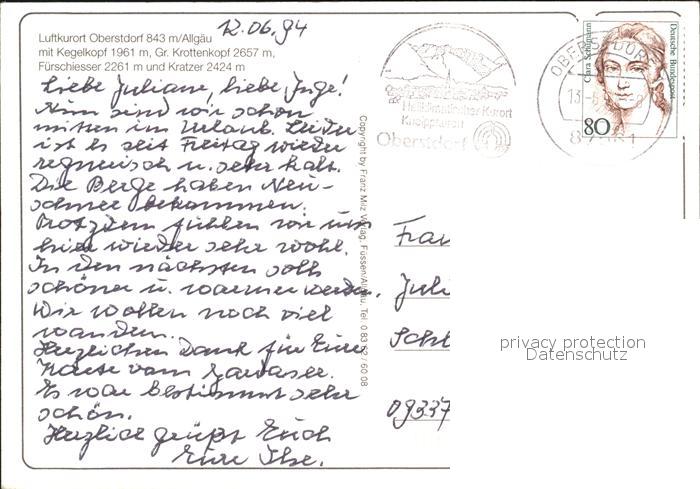 12.06.94
Luftkurort Oberstdorf 843 m/Allgäu
mit Kegelkopf 1961 m, Gr. Krottenkopf 2657 m,
Fürschiesser 2261 m und Kratzer 2424 m
Liebe Juliane, liebe Inge!
Nun sind wir schon
mitten im Urlaub. Leider
ist es seit Freitag wieder
regnerisch u. sehr kalt.
Die Berge haben Neu-
schnee bekommen.
Trotzdem fühlen wir uns
hier wieder sehr wohl.
In den nächsten solls
schöner u. wärmer werden.
Wir wollen noch viel
wandern.
Herzlichen Dank für Eure
Karte vom Gardasee.
Es war bestimmt sehr
schön.
Herzlich grüßt Euch
Eure Ilse.
Copyright by Franz Milz Verlag, Füssen/Allgäu, Tel. 0 83 62 / 60 08
Heilklimatischer Kurort
Kneippkurort
Oberstdorf
OBERSTDORF
13.-6
87561
Clara Schumann
Deutsche Bundespost
80
Frau
Juli
Schl
09337
privacy protection
Datenschutz